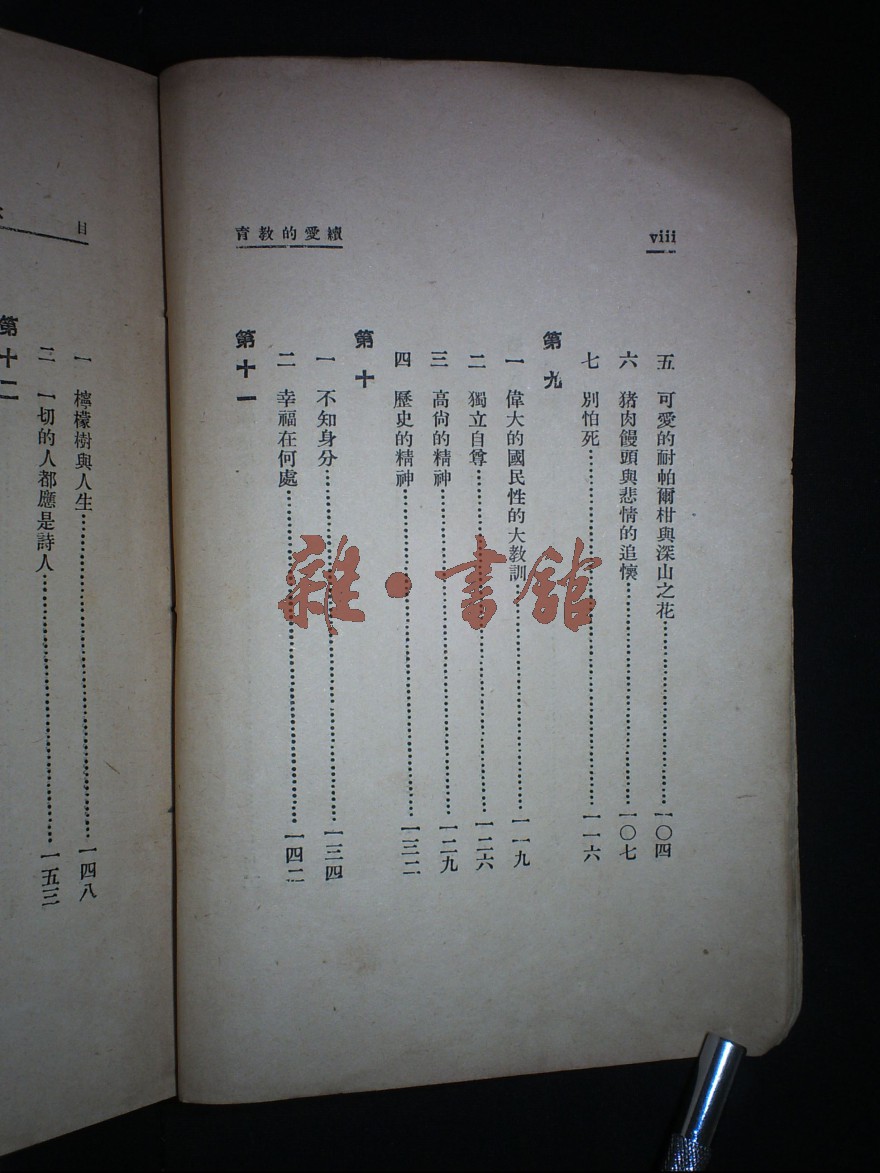 育教的愛續
viii
五　可愛的耐帕爾柑與深山之花……一〇四
六　猪肉饅頭與悲情的追懐……一〇七
七　別怕死……一一六
第九
一　偉大的國民性的大教訓……一一九
二　獨立自尊……一二六
三　高尙的精神……一二九
四　歷史的精神……一三二
第十
一　不知身分……一三四
二　幸福在何處……一四二
第十一
目
一　檸檬樹與人生……一四八
二　一切的人都應是詩人……一五三
第十二
雜·書館